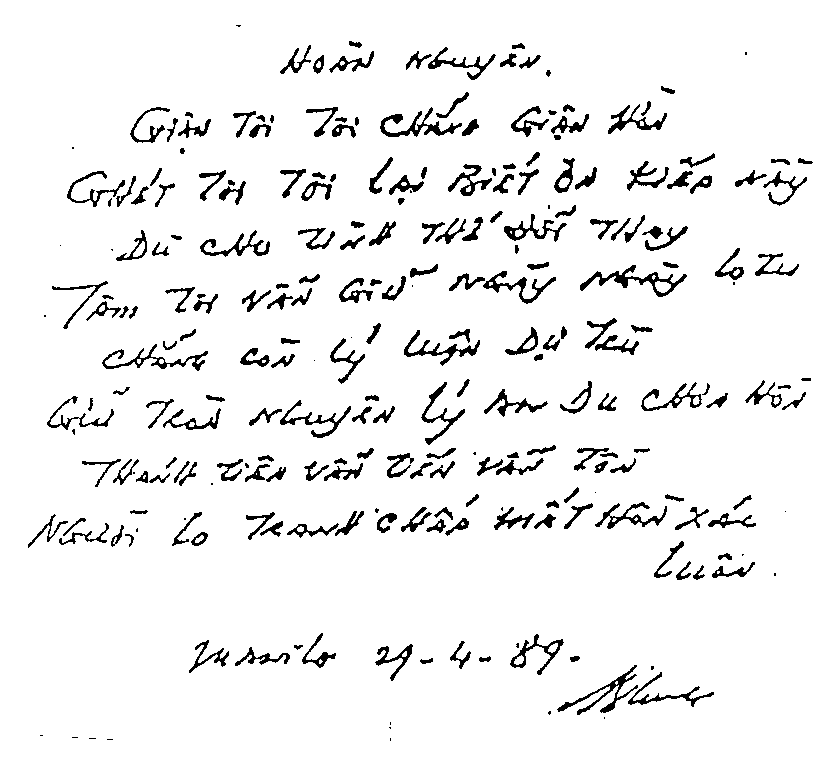 Hoàn Nguyên.
Giận Tôi Tôi chẳng Giận Hờn
Ghét Tôi Tôi lại Biết ơn kiếp nầy
Dù cho tình thế đổi thay
Tâm Tôi vẫn Giữ ngày ngày lo tu
chẳng còn lý luận Dự trù
Giữ tròn nguyên lý An Du chơn hồn
Thánh tiên vẫn tiến vẫn tồn
Người lo tranh chấp mất hồn xác
luôn.
29-4-89-